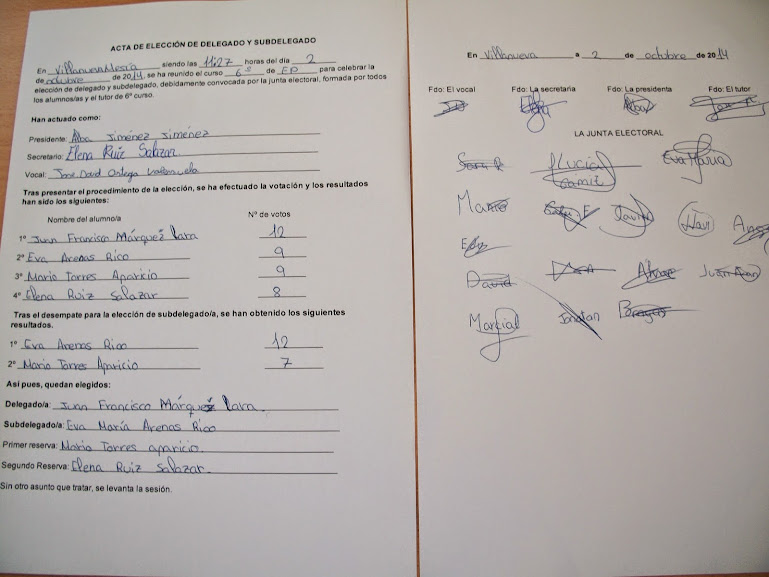 ACTA DE ELECCIÓN DE DELEGADO Y SUBDELEGADO
En Villanueva Mesía siendo las 11:27 horas del día 2
de octubre de 2014, se ha reunido el curso 6º de EP para celebrar la
elección de delegado y subdelegado, debidamente convocada por la junta electoral, formada por todos
los alumnos/as y el tutor de 6º curso.
Han actuado como:
Presidente: Alba Jiménez Jiménez
Secretario: Elena Ruiz Salazar
Vocal: Jose David Ortega Valenzuela
Tras presentar el procedimiento de la elección, se ha efectuado la votación y los resultados
han sido los siguientes:
Nombre del alumno/a Nº de votos
1º Juan Francisco Márquez Lara 12
2º Eva Arenas Rico 9
3º Mario Torres Aparicio 9
4º Elena Ruiz Salazar 8
Tras el desempate para la elección de subdelegado/a, se han obtenido los siguientes
resultados.
1º Eva Arenas Rico 12
2º Mario Torres Aparicio 7
Así pues, quedan elegidos:
Delegado/a: Juan Francisco Márquez Lara.
Subdelegado/a: Eva María Arenas Rico
Primer reserva: Mario Torres aparicio.
Segundo Reserva: Elena Ruiz Salazar.
Sin otro asunto que tratar, se levanta la sesión.
En Villanueva a 2 de octubre de 2014
Fdo: El vocal Fdo: La secretaria Fdo: La presidenta Fdo: El tutor
LA JUNTA ELECTORAL
Lucia Eva María
Mario Javi
David Juan
Marcial Jonatan